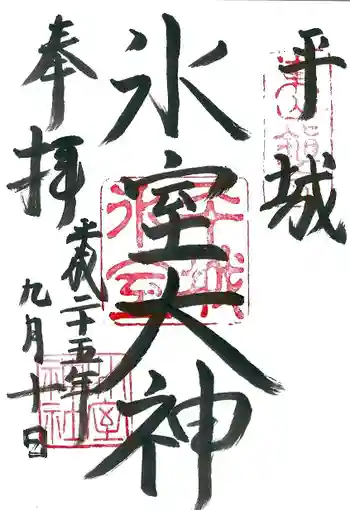 平城
氷室大神
奉拝
平成二十五年
九月十日
平城
氷室